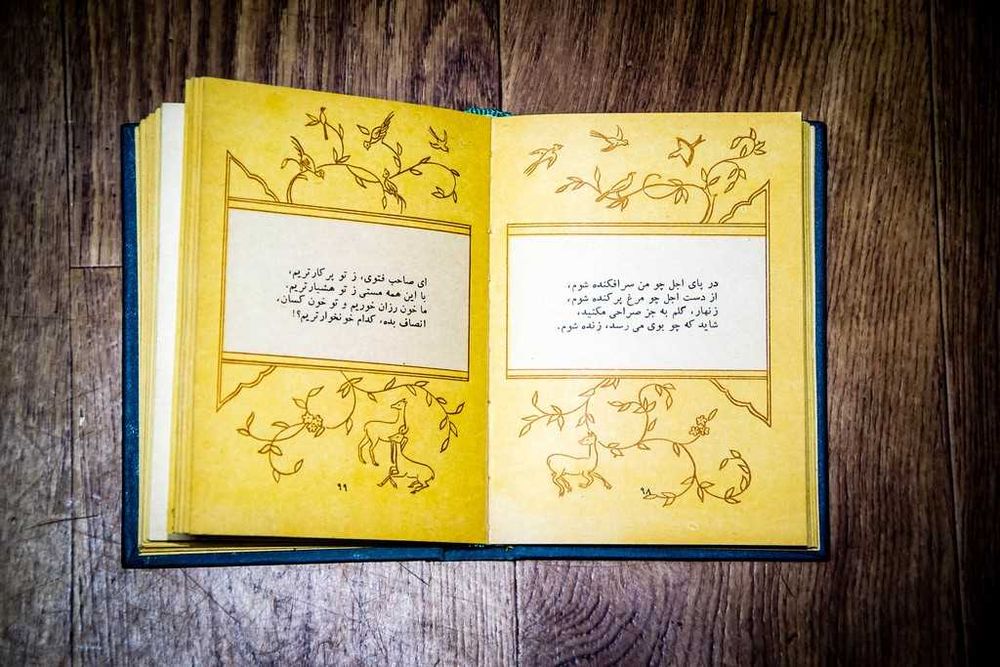 در پای اجل چو من سرافکنده شوم،
از دست اجل چو مرغ پرکنده شوم،
زنهار، گلم به جز صراحی مکنید،
شاید که چو بوی می رسد، زنده شوم.
۹۸
ای صاحب فتوی، ز تو پرکارتریم،
با این همه مستی ز تو هشیارتریم.
ما خون رزان خوریم و تو خون کسان،
انصاف بده، کدام خونخوارتریم؟!
۹۹